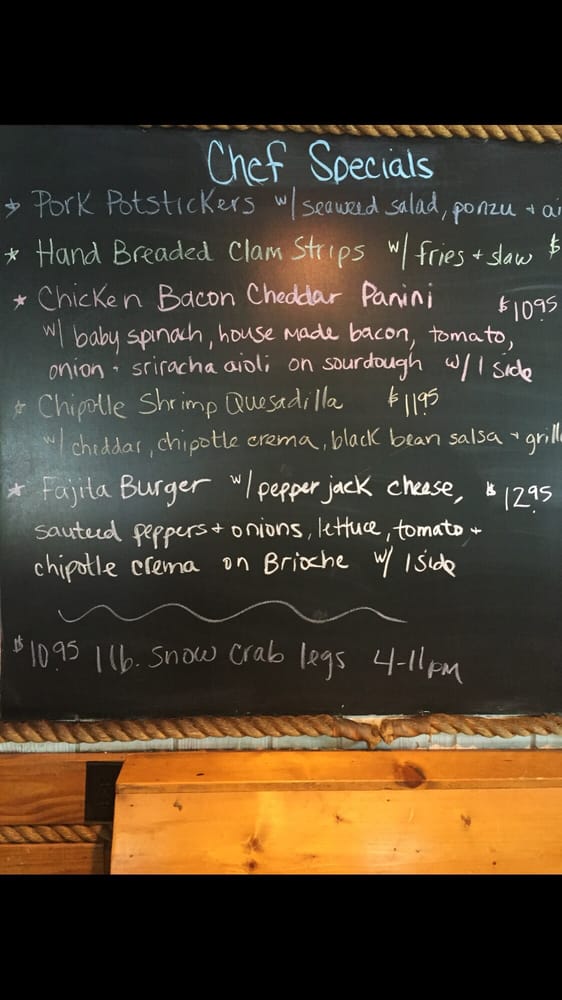 Chef Specials
Pork Potstickers w/ seaweed salad, ponzu +
* Hand Breaded Clam Strips w/ fries + slaw $
* Chicken Bacon Cheddar Panini $10.95
w/ baby spinach, house made bacon, tomato,
onion + sriracha aioli on sourdough w/ 1 side
* Chipotle Shrimp Quesadilla $11.95
w/ cheddar, chipotle crema, black bean salsa +
* Fajita Burger w/ pepper jack cheese, $12.95
sauteed peppers + onions, lettuce, tomato +
chipotle crema on Brioche w/ 1 side
$10.95 1 lb. snow crab legs 4-11pm